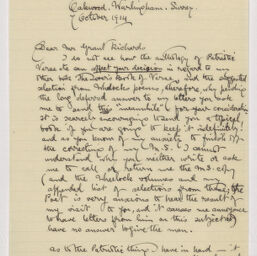 Oakwood. Warlingham. Surrey.
7 October 1914
Dear Mr Grant Richards
I do not see how the anthology of Patriotic
Verse can affect your decision in regard to my
other book The Lover's Book of Verse, and the
selection from poems, therefore, why pending
the long deferred answer to my letters you ask
me to send this for your consideration
It is scarcely encouraging to send you a typical
book if you are going to keep it indefinitely!
and as you know of my anxiety to finish
the correcting of my M.S. I cannot
understand why you neither write or ask
me to call or return me the M.S.
(and the volumes and my
appended list of selections from them,) the
Poet is very anxious to hear the result of
my visit to you, and it causes me annoyance
to have letters from him on this subject &
have no answer to give the man.
As to the Patriotic thing I have in hand — it